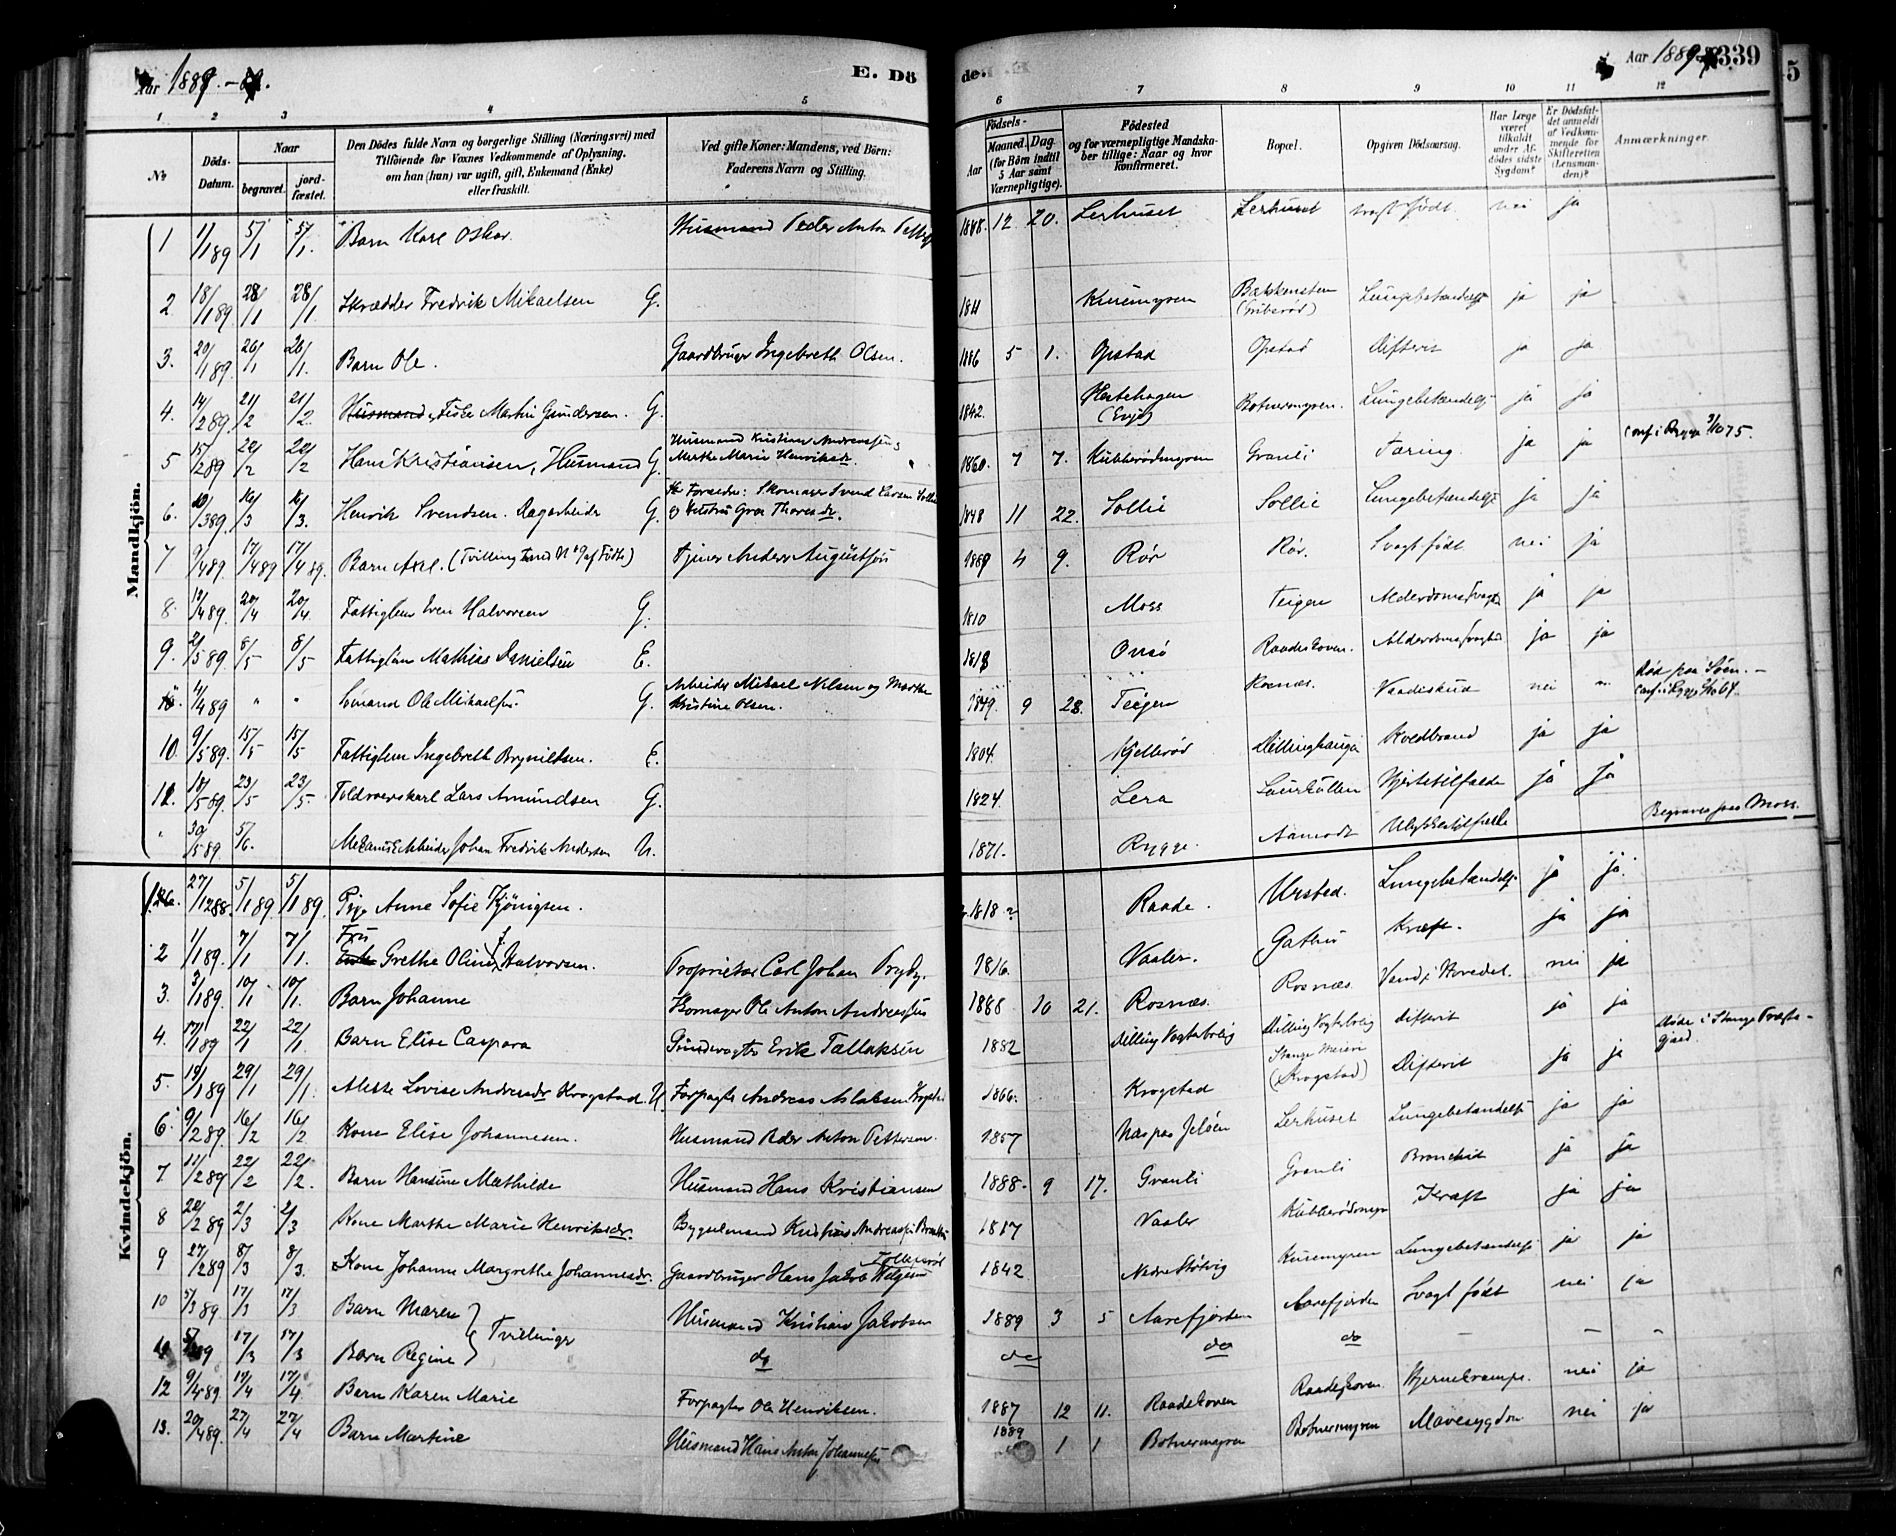 Aar 1889.
E. Dö
de.
Aar 1889
339
5
1 2 3 4 5 6 7 8 9 10 11 12
No
Döds-Datum.
Naar
begravet. jordfæstet.
Den Dödes fulde Navn og borgerlige Stilling (Næringsvei) med Tilföiende for Voxnes Vedkommende af Oplysning, om han (hun) var ugift, gift, Enkemand (Enke) eller fraskilt.
Ved gifte Koner: Mandens, ved Börn: Faderens Navn og Stilling.
Födsels-
Aar Maaned. Dag. (for Börn indtil 5 Aar samt Værnepligtige).
Födested og for værnepligtige Mandskaber tillige: Naar og hvor konfirmeret.
Bopæl.
Opgiven Dödsaarsag.
Har Læge været tilkaldt under Afdödes sidste Sygdom?
Er Dödsfaldet anmeldt af Vedkommende for Skifteretten (Lensmanden)?
Anmærkninger.
Mandkjön.
1 1/1 89 5/1 5/1. Barn Karl Oskar. Husmand Peder Anton 1888. 12 20. Lerhuset Lerhuset svagt født. nei ja
2 18/1 89 28/1 28/1. Skrædder Fredrik Mikaelsen G. 1811 Kuremyren Bakkensten Lungebetændelse ja ja
3. 20/1 89. 26/1 26/1. Barn Ole. Gaardbruger Ingebreth Olsen. 1886 5 1. Opstad Opstad Difterit ja ja
4. 14/2 89. 21/2 21/2. Husmand, Fisker Martin Gundersen. G. 1842. Hestehagen Botnermyren. Lungebetændelse ja ja
5 15/2 89 20/2 20/2 Hans Kristiansen, Husmand G. Husmand Kristian Andreassen og Marthe Marie Henriksdr. 1860. 7 7. Kubberödmyren Granli Tæring. ja ja Conf. i Rygge 3/10 75.
6. 10/3 89. 16/3 16/3. Henrik Svendsen. Dagarbeider G. Forældre: Skomager Svend Larsen Sollie og Hustru Gro Thoresdr. 1848 11 22. Sollie Sollie Lungebetændelse ja ja
7 9/4 89. 17/4 89 17/4 89. Barn Axel. (Tvilling Fød No 9 af Födte) Tjener Anders Augustsen 1889 4 9. Rör Rör. Svagt født nei ja
8. 12/4 89. 20/4 20/4. Fattiglem Iver Halvorsen G. 1810 Moss Teigen Alderdomssvaghed ja ja
9. 2/5 89. 8/5 8/5 Fattiglem Mathias Danielsen E. 1818 Onsö Raadeskoven. Alderdomssvaghed ja ja
4/4 89 " " Sömand Ole Mikaelsen G. Arbeider Mikael Nilsen og Marthe Kristine Olsen. 1849. 9 28. Teigen Rosnæs. Vaadeskud nei " Död paa Söen. –
10. 9/5 89. 15/5 15/5 Fattiglem Ingebreth Brynildsen. E. 1804. Kjelleröd Dillinghaugen Koldbrand ja ja
11. 18/5 89. 23/5 23/5. Toldroerskarl Lars Amundsen G. 1824. Lera Laurkullen Hjertetilfælde ja ja
" 30/5 89. 5/6. Mekanisk Arbeider Johan Fredrik Andersen U. 1871. Rygge. Aamodt Ulykkestilfælde Begraves paa Moss.
Kvindekjön.
1. 27/12 88. 5/1 89 5/1 89. Pige Anne Sofie Kjönigsen. 1818? Raade. Ursted. Lungebetændelse ja ja.
2 1/1 89. 7/1 7/1. Fru Enke Grethe Oline f. Halvorsen. Proprietær Carl Johan Pryds. 1816. Vaaler. Gathus Kræft. ja ja
3. 3/1 89. 10/1 10/1. Barn Johanne Skomager Ole Anton Andreassen 1888 10 21. Rosnæs. Rosnæs. Vand i Hovedet. nei ja
4. 17/1 89 22/1 22/1. Barn Elise Caspara Grindevogter Erik Tallaksen 1882 Dilling Vogterbolig Dilling Vogterbolig difterit ja ja Döde i Stange Præstegjæld.
5. 19/1 89 29/1 29/1. Alette Lovise Andreasdr Krogstad. U. Forpagter Andreas Aslaksen Krogstad 1866. Krogstad Stange Meieri (Krogstad) Difterit ja ja
6. 9/2 89. 16/2 16/2 Kone Elise Johannesen. Husmand Peder Anton Pettersen. 1857 Næs paa Jelöen Lerhuset Lungebetændelse ja ja
7 11/2 89 22/2 22/2. Barn Hansine Mathilde Husmand Hans Kristiansen 1888. 9 17. Granli Granli Bronchit ja ja
8 20/2 89 2/3 2/3 Kone Marthe Marie Henriksdr. Bygselmand Kristian Andreassen 1817 Vaaler Kubberödmyr Kræft ja ja
9 27/2 89 8/3 8/3. Kone Johanne Margrethe Johannesdr. Gaardbruger Hans Jakob Helgesen 1842 Nedre Stötvig Kuremyren Lungebetændelse ja ja
10 5/3 89 17/3 17/3 Barn Maren } Tvillinger Husmand Kristian Jakobsen 1889 3 5 Aarefjorden Aarefjorden Svagt født nei ja
17/3 17/3 Barn Regine do do do do – – –
12 9/4 89. 17/4 17/4. Barn Karen Marie Forpagter Ole Henriksen. 1887 12 11. Raadeskoven Raadeskoven. Hjernekrampe. nei ja
13. 20/4 89. 27/4 27/4 Barn Martine Husmand Hans Anton Johannessen 1889 1 1 Botnermyren Botnermyren Mavesygdom nei ja